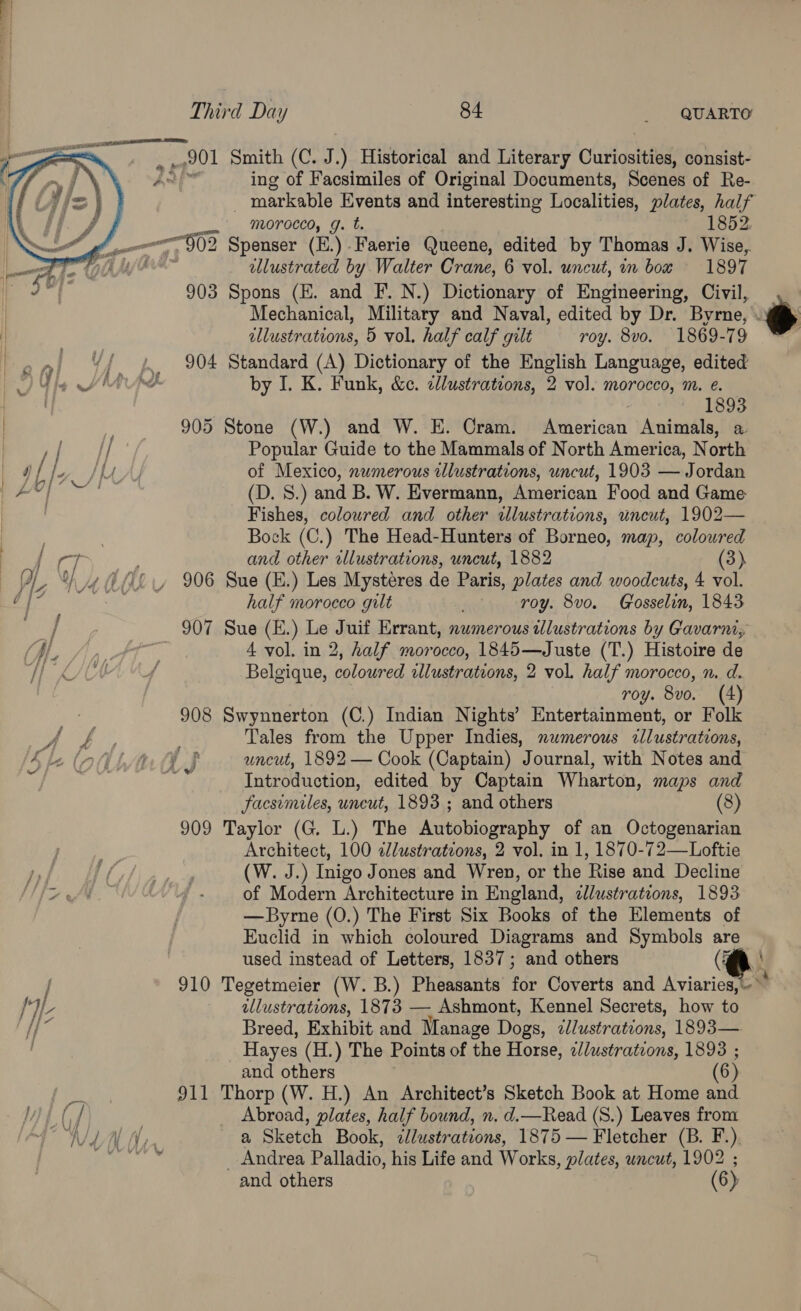 Third Day 84 QUARTO
901 Smith (C. J.) Historical and Literary Curiosities, consist-
ing of Facsimiles of Original Documents, Scenes of Re-
markable Events and interesting Localities, plates, half
morocco, g. t. 1852
902 Spenser (E.) Faerie Queene, edited by Thomas J. Wise,
illustrated by Walter Crane, 6 vol. uncut, in box 1897
903 Spons (E. and F. N.) Dictionary of Engineering, Civil,
Mechanical, Military and Naval, edited by Dr. Byrne,
illustrations, 5 vol. half calf gilt roy. 8vo. 1869-79
904 Standard (A) Dictionary of the English Language, edited
by I. K. Funk, &c. illustrations, 2 vol. morocco, m. e.
1893
905 Stone (W.) and W. E. Cram. American Animals, a
Popular Guide to the Mammals of North America, North
of Mexico, numerous illustrations, uncut, 1903 — Jordan
(D. S.) and B. W. Evermann, American Food and Game
Fishes, coloured and other illustrations, uncut, 1902—
Bock (C.) The Head-Hunters of Borneo, map, coloured
and other illustrations, uncut, 1882 (3)
906 Sue (E.) Les Mystères de Paris, plates and woodcuts, 4 vol.
half morocco gilt roy. 8vo. Gosselin, 1843
907 Sue (E.) Le Juif Errant, numerous illustrations by Gavarni,
4 vol. in 2, half morocco, 1845—Juste (T.) Histoire de
Belgique, coloured illustrations, 2 vol. half morocco, n. d.
roy. 8vo. (4)
908 Swynnerton (C.) Indian Nights' Entertainment, or Folk
Tales from the Upper Indies, numerous illustrations,
uncut, 1892 — Cook (Captain) Journal, with Notes and
Introduction, edited by Captain Wharton, maps and
facsimiles, uncut, 1893 ; and others (8)
909 Taylor (G. L.) The Autobiography of an Octogenarian
Architect, 100 illustrations, 2 vol. in 1, 1870-72—Loftie
(W. J.) Inigo Jones and Wren, or the Rise and Decline
of Modern Architecture in England, illustrations, 1893
—Byrne (O.) The First Six Books of the Elements of
Euclid in which coloured Diagrams and Symbols are
used instead of Letters, 1837; and others
910 Tegetmeier (W. B.) Pheasants for Coverts and Aviaries,
illustrations, 1873 — Ashmont, Kennel Secrets, how to
Breed, Exhibit and Manage Dogs, illustrations, 1893—
Hayes (H.) The Points of the Horse, illustrations, 1893 ;
and others (6)
911 Thorp (W. H.) An Architect's Sketch Book at Home and
Abroad, plates, half bound, n. d.—Read (S.) Leaves from
a Sketch Book, illustrations, 1875 — Fletcher (B. F.)
Andrea Palladio, his Life and Works, plates, uncut, 1902 ;
and others (6)